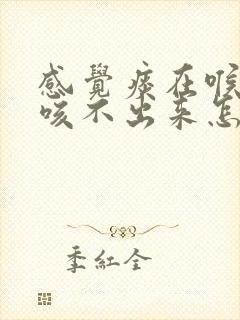 感覺痰在喉
咳不出來怎
季紅全